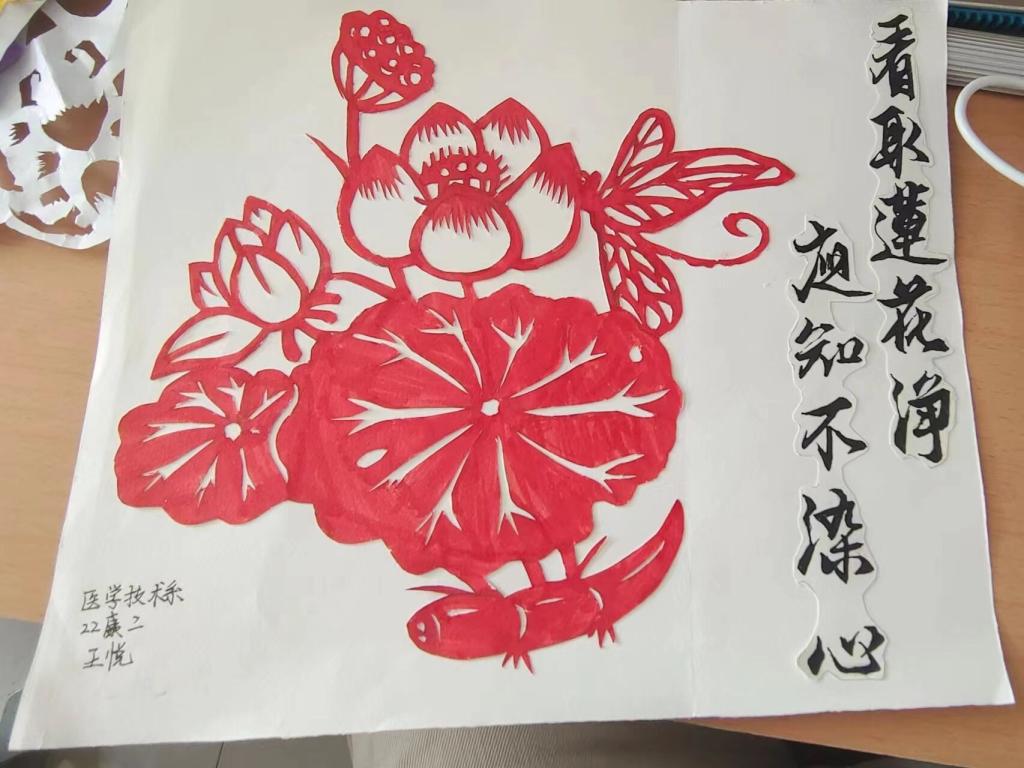 看取蓮花净
应知不染心
医学技术系
22康二
王悦